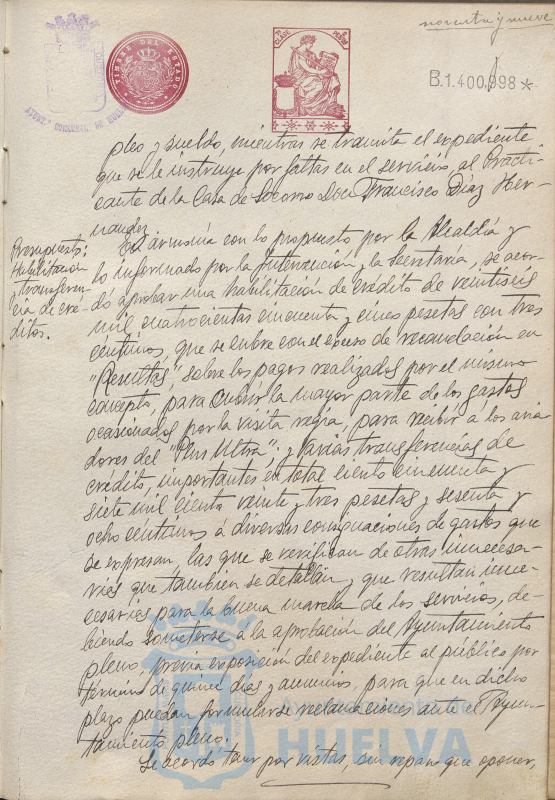 noventa y nueve
AYUNT.º CONSTNAL. DE HUELVA
TIMBRE DEL ESTADO
7ª CLASE
PESETAS
B.1.400.998 *
pleo y sueldo, mientras se tramita el expediente
que se le instruye por faltas en el servicio, al Practi-
cante de la Casa de Socorro Don Francisco Díaz Her-
nandez.
Presupuesto:
Habilitación
y Transferen-
cia de cré-
ditos.
En armonía con lo propuesto por la Alcaldía y
lo informado por la Intervención y la Secretaria, se acor-
dó aprobar una habilitación de crédito de veintiseis
mil cuatrocientas cincuenta y cinco pesetas con tres
centimos, que se cubre con el exceso de recaudación en
"Resultas", sobre los pagos realizados por el mismo
concepto, para cubrir la mayor parte de los gastos
ocasionados por la visita regia, para recibir á los avia
dores del "Plus Ultra"; y varias transferencias de
crédito, importantes en total ciento cincuenta y
siete mil ciento veinte y tres pesetas y sesenta y
ocho céntimos á diversas consignaciones de gastos que
se expresan, las que se verifican de otras innecesa-
rias que tambien se detallan y que resultan inne-
cesarias para la buena marcha de los servicios, de-
biendo someterse á la aprobación del Ayuntamiento
pleno, previa exposición del expediente al público por
término de quince días y anuncios, para que en dicho
plazo puedan formularse reclamaciones ante el Ayun-
tamiento pleno.
HUELVA
Se acordó tener por vistas, sin reparo que oponer,